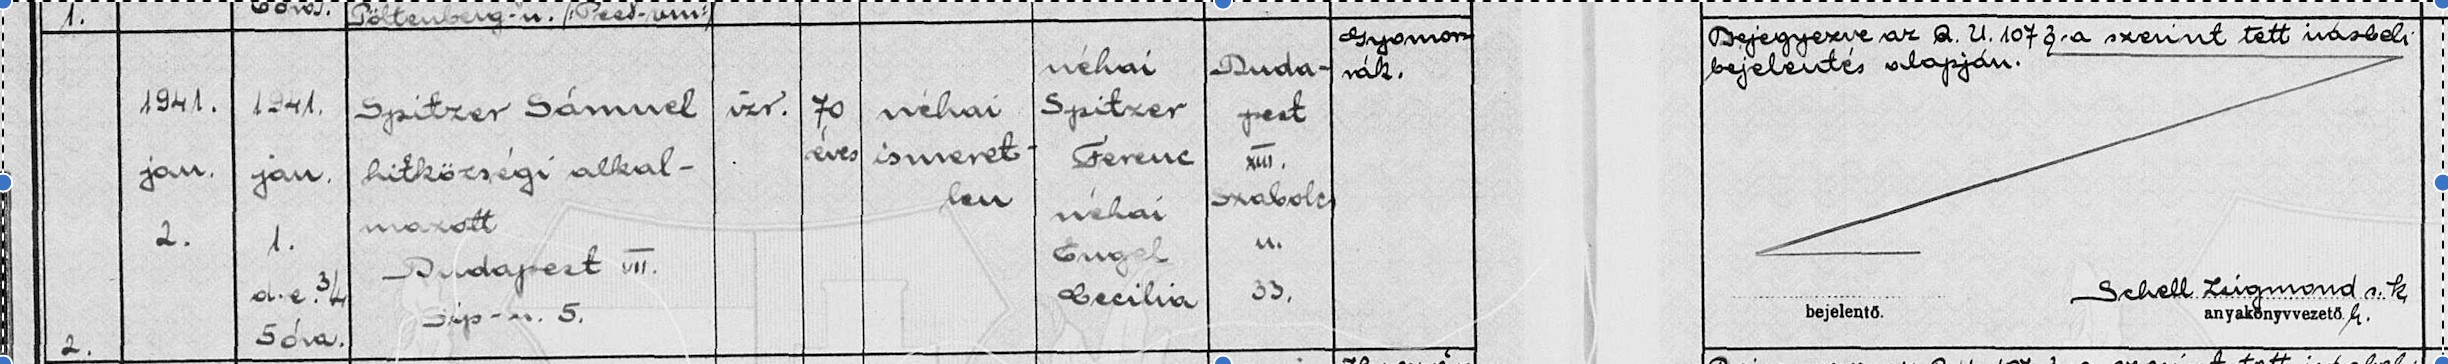 1.
Pöltenberg-u. /:Pest-vm:/
2.
1941.
jan.
2.
1941.
jan.
1.
d.e. 3/4
5 óra.
Spitzer Sámuel
hitközségi alkal-
mazott
Budapest VII.
Síp-u. 5.
izr.
70
éves
néhai
ismeret-
len
néhai
Spitzer
Ferenc
néhai
Engel
Cecilia
Buda-
pest
XIII.
Szabolcs
u.
33.
Gyomor-
rák.
Bejegyezve az A. U. 107 §-a szerint tett írásbeli
bejelentés alapján.
bejelentő.
Schell Zsigmond s. k.
anyakönyvvezető h.